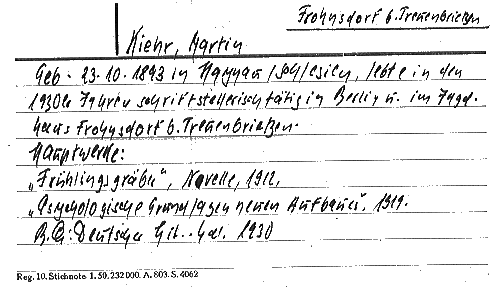 Frohnsdorf b. Treuenbrietzen
Kiehr, Martin
Geb. 23.10.1893 in Haynau/Schlesien, lebte in den
1930er Jahren schriftstellerisch tätig in Berlin u. im Jagd-
haus Frohnsdorf b. Treuenbrietzen.
Hauptwerke:
„Frühlingsgräber", Novelle, 1912,
„Psychologische Grundlagen neuen Aufbaues". 1919.
B.Q: Deutscher Lit.-Kal. 1930
Reg. 10. Stichnote 1. 50. 232 000. A. 803. S. 4062